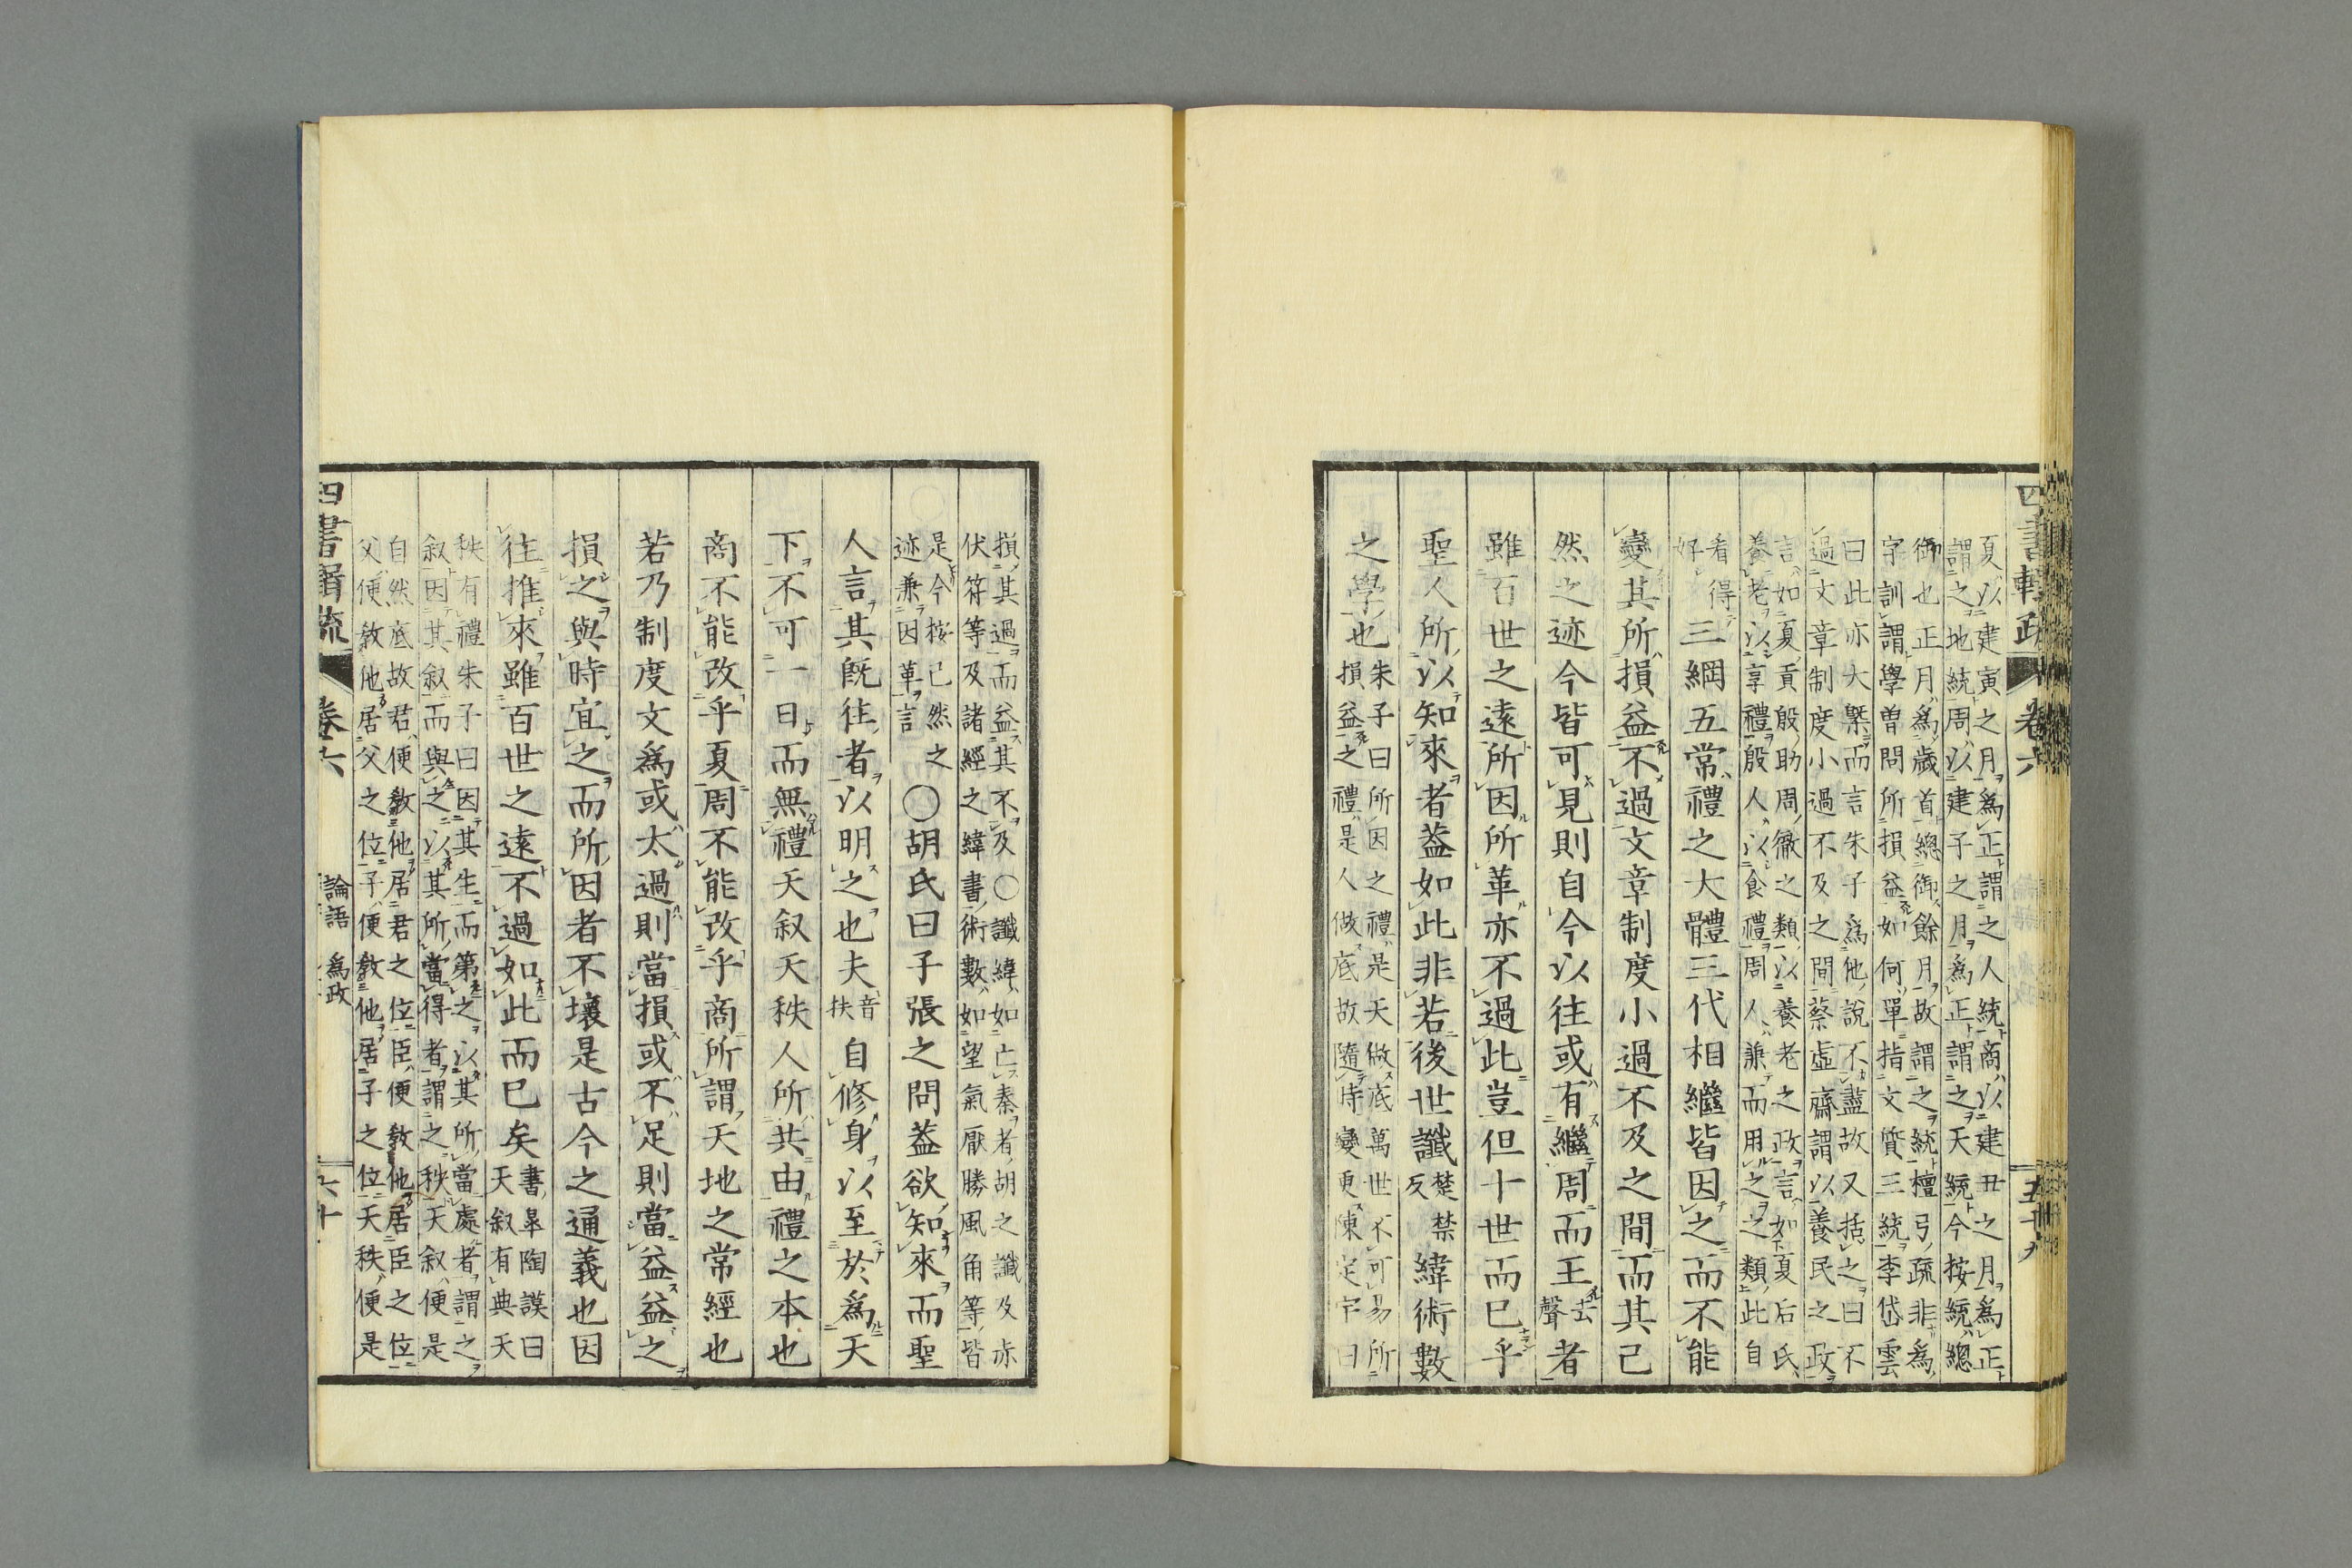 四書輯疏 卷六 五十九
夏以建寅之月爲正謂之人統商以建丑之月爲正
謂之地統周以建子之月爲正謂之天統今按統總
御也正月爲歲首總御餘月故謂之統檀弓疏非爲
字訓謂學曽問所損益如何單指文質三統李岱雲
曰此亦大槩而言朱子爲他說不盡故又括之曰不
過文章制度小過不及之間蔡虛齋謂以養民之政
言如夏貢殷助周徹之類以養老之政言如夏后氏
養老以享禮殷人以食禮周人兼而用之之類此自
看得
好 三綱五常禮之大體三代相繼皆因之而不能
變其所損益不過文章制度小過不及之間而其已
然之迹今皆可見則自今以往或有繼周而王去聲者
雖百世之遠所因所革亦不過此豈但十世而已乎
聖人所以知來者蓋如此非若後世讖楚禁反緯術數
之學也朱子曰所因之禮是天做底萬世不可易所
損益之禮是人做底故隨時變更陳定宇曰
損其過而益其不及○讖緯如亡秦者胡之讖及赤
伏符等及諸經之緯書術數如望氣厭勝風角等皆
是今按已然之
迹兼因革言 ○胡氏曰子張之問蓋欲知來而聖
人言其旣往者以明之也夫音扶自修身以至於爲天
下不可一日而無禮天叙天秩人所共由禮之本也
商不能改乎夏周不能改乎商所謂天地之常經也
若乃制度文爲或太過則當損或不足則當益益之
損之與時宜之而所因者不壞是古今之通義也因
往推來雖百世之遠不過如此而已矣書皋陶謨曰
天叙有典天
秩有禮朱子曰因其生而第之以其所當處者謂之
叙因其叙而與之以其所當得者謂之秩天叙便是
自然底故君便敎他居君之位臣便敎他居臣之位
父便敎他居父之位子便敎他居子之位天秩便是
四書輯疏 卷六 論語 爲政 六十